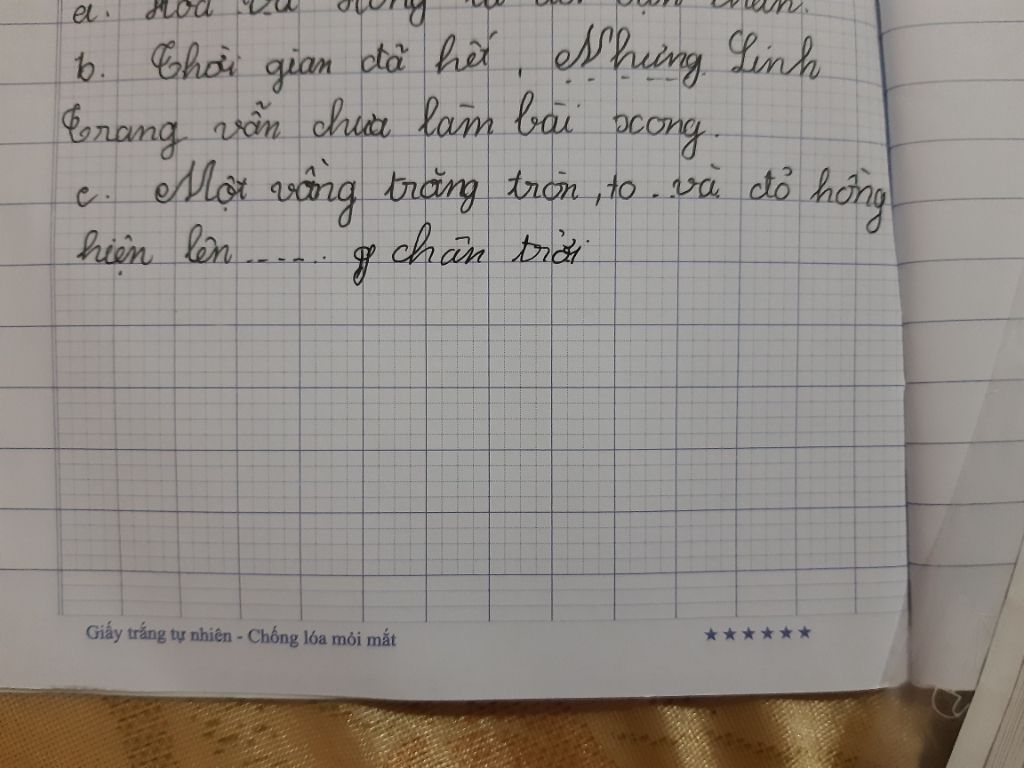 a. Hoa và
b. Thời gian đã hết, Nhưng Linh
Trang vẫn chưa làm bài xong.
c. Một vầng trăng tròn, to .. và đỏ hồng
hiện lên ..... ở chân trời
Giấy trắng tự nhiên - Chống lóa mỏi mắt ★★★★★★